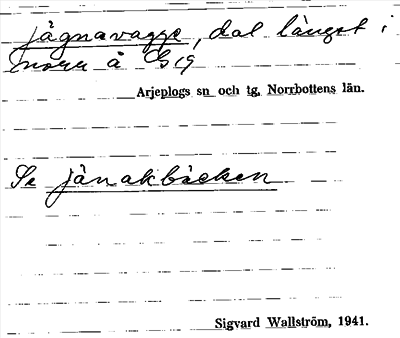 jägnavagge, dal längst i
norr å G 19
Arjeplogs sn och tg, Norrbottens län.
Se jänakbäcken
Sigvard Wallström, 1941.